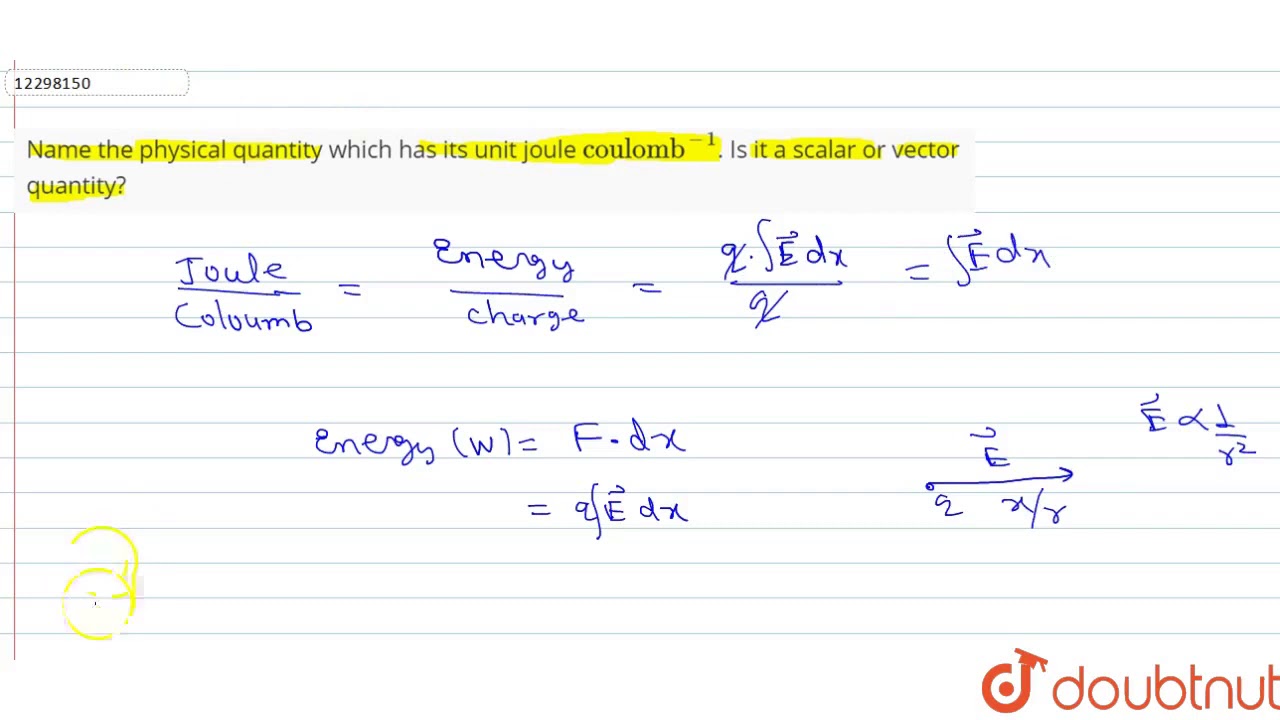 12298150
Name the physical quantity which has its unit joule coulomb⁻¹. Is it a scalar or vector
quantity?
Joule/Coloumb = Energy/charge = q·∫E⃗ dx/q = ∫E⃗ dx
Energy (W) = F·dx
= q∫E⃗ dx
E⃗
q x/r
E⃗ ∝ 1/r²
doubtnut